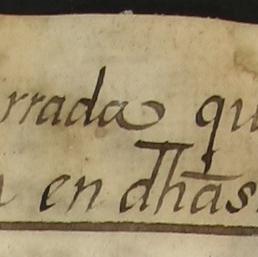 rrada qu
en dhãs